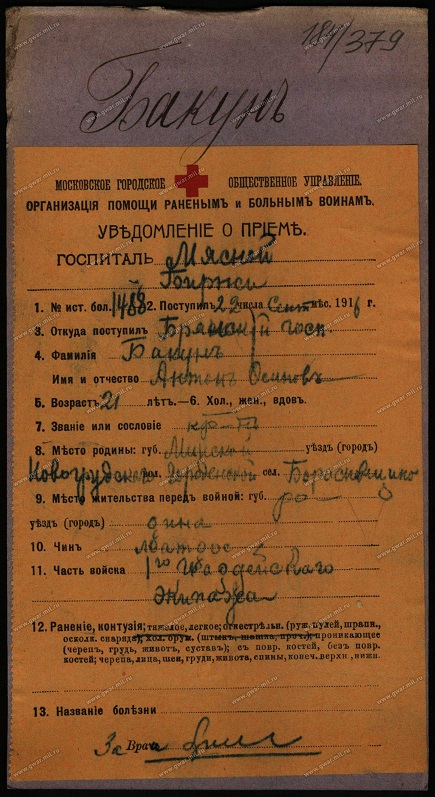 184/379
Бакунъ
МОСКОВСКОЕ ГОРОДСКОЕ ОБЩЕСТВЕННОЕ УПРАВЛЕНІЕ.
ОРГАНИЗАЦІЯ ПОМОЩИ РАНЕНЫМЪ и БОЛЬНЫМЪ ВОИНАМЪ.
УВѢДОМЛЕНІЕ О ПРІЕМѢ.
ГОСПИТАЛЬ Мясной
Биржи
1. № ист. бол. 1488 2. Поступилъ 22 числа Сент мѣс. 1916 г.
3. Откуда поступилъ Брянскій госп
4. Фамилія Бакунъ
Имя и отчество Антонъ Осиповъ
5. Возрастъ 21 лѣтъ.—6. Хол., жен., вдовъ.
7. Званіе или сословіе кр-нъ
8. Мѣсто родины: губ. Минской уѣздъ (городъ)
Новогрудскаго вол. Городечской сел.
9. Мѣсто жительства передъ войной: губ. ро
уѣздъ (городъ) дина
10. Чинъ матрос
11. Часть войска 1го Гвардейскаго
Экипажа
12. Раненіе, контузія; тяжелое, легкое; огнестрѣльн. (руж. пулей, шрапн.,
осколк. снаряда), хол. оруж. (штыкъ, шашка, проч.); проникающее
(черепъ, грудь, животъ, суставъ); съ повр. костей, безъ повр.
костей; черепа, лица, шеи, груди, живота, спины, конеч. верхн., нижн.
13. Названіе болѣзни
За Врача
www.gwar.mil.ru